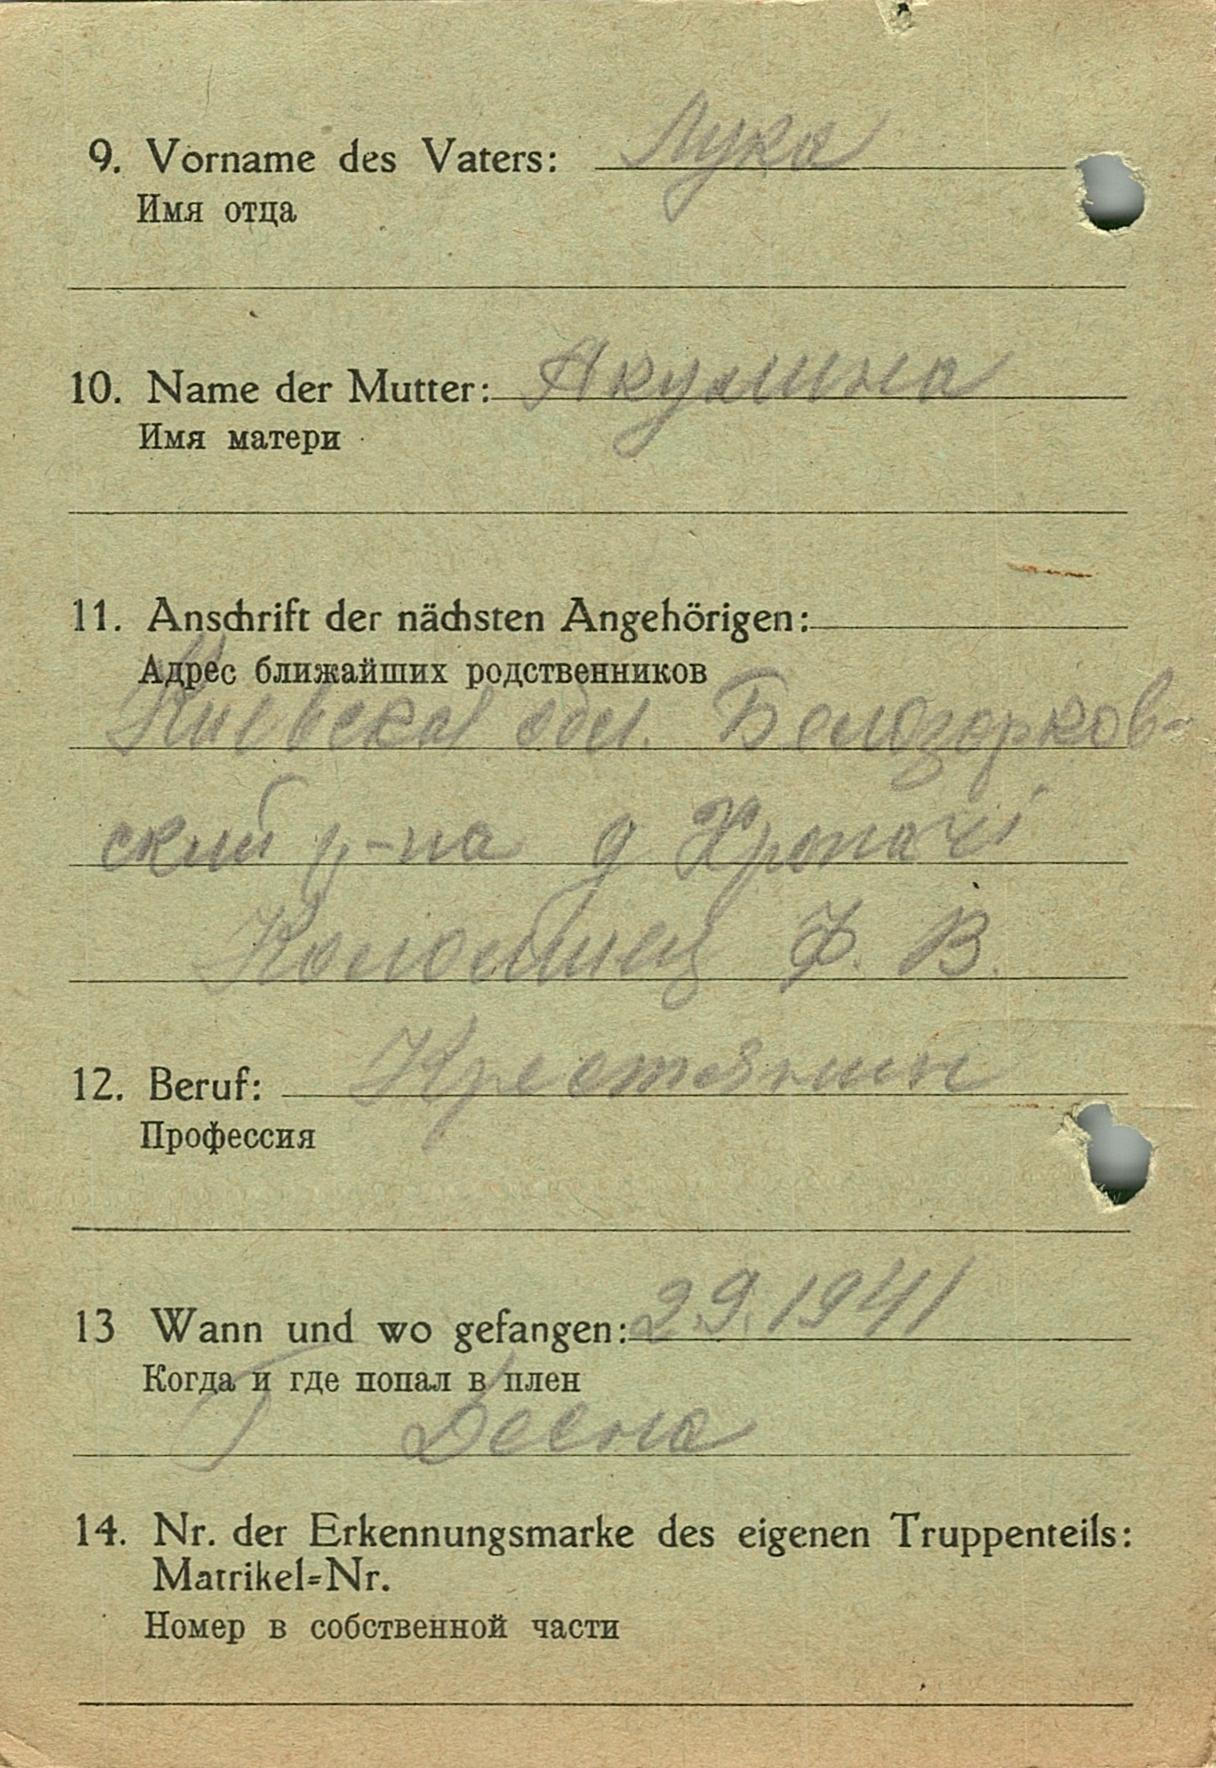 9. Vorname des Vaters: Лука
Имя отца
10. Name der Mutter: Акулина
Имя матери
11. Anschrift der nächsten Angehörigen:
Адрес ближайших родственников
Киевска обл.
ский р-на д Хропачі
Коломиец Ф. В.
12. Beruf: Крестянин
Профессия
13 Wann und wo gefangen: 2.9.1941
Когда и где попал в плен
Десна
14. Nr. der Erkennungsmarke des eigenen Truppenteils:
Matrikel=Nr.
Номер в собственной части